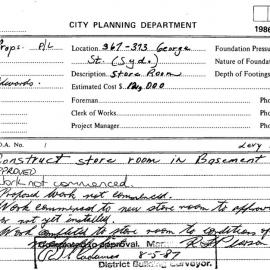 CITY PLANNING DEPARTMENT
1986
Props. P/L Location 367-373 George Foundation Pressu
St. (Syd.) Nature of Founda
Description Store Room Depth of Footings
Edwards. Estimated Cost $
Foreman Pho
Clerk of Works Pho
Project Manager Pho
D.A. No. / Levy
Construct store room in Basement
APPROVED
Work not commenced.
Propose Work not commenced.
Work commenced to new store room to approv
is not yet installed.
Work completed to store room to the conditions of
approval. Mar.
8-5-87
District Building Surveyor.